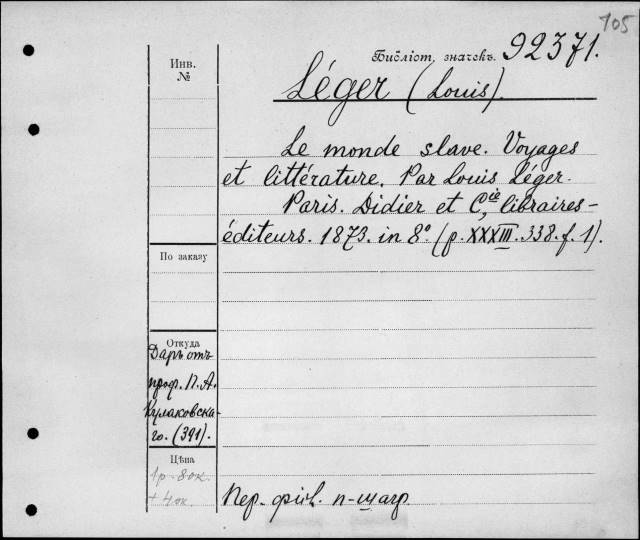 105
Библіот. значекъ. 92371.
Инв.
№
Léger (Louis).
Le monde slave. Voyages
et littérature. Par Louis Léger.
Paris. Didier et Cie, libraires-
éditeurs. 1873. in 8° (p. XXXIII. 338. f. 1).
По заказу
Откуда
Даръ отъ
проф. П. А.
Кулаковска-
го. (391).
Цѣна
1 р - 80к.
+ 40к.
Пер.